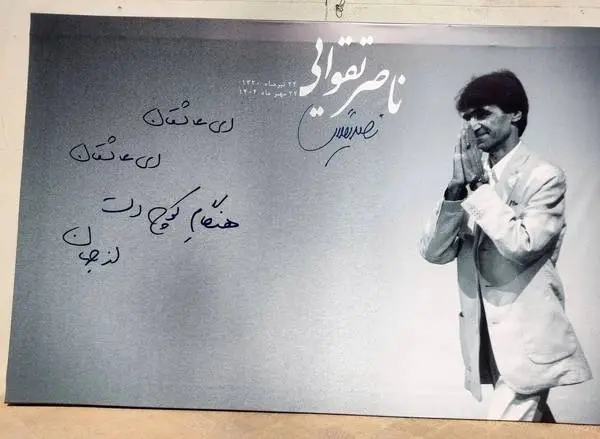 ناصر تقوایی
۲۲ تیرماه ۱۳۲۰
۲۲ مهر ماه ۱۴۰۴
ای عاشقان
ای عاشقان
هنگامِ کوچ است
از جهان